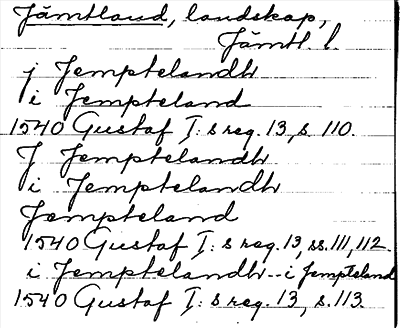 Jämtland, landskap,
Jämtl. l.
j Jemptelandh
i Jempteland
1540 Gustaf I:s reg. 13, s. 110.
J Jemptelandh
i Jemptelandh
Jæmpteland
1540 Gustaf I:s reg. 13, ss. 111, 112.
i Jemptelandh - - i Jempteland
1540 Gustaf I:s reg. 13, s. 113.